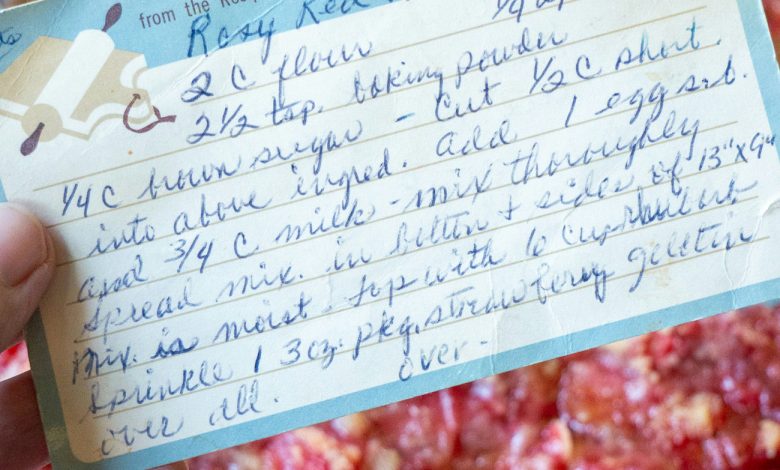 from the
Rosy Red
2 C flour 1/4
2 1/2 tsp. baking powder
1/4 C brown sugar - Cut 1/2 C short.
into above ingred. add 1 egg sub.
and 3/4 C milk - mix thoroughly
Spread mix. in bottom + sides of 13" x 9"
mix. is moist - top with 6 cup rhubarb
Sprinkle 1 3 oz. pkg. strawberry geletin
over all. over -